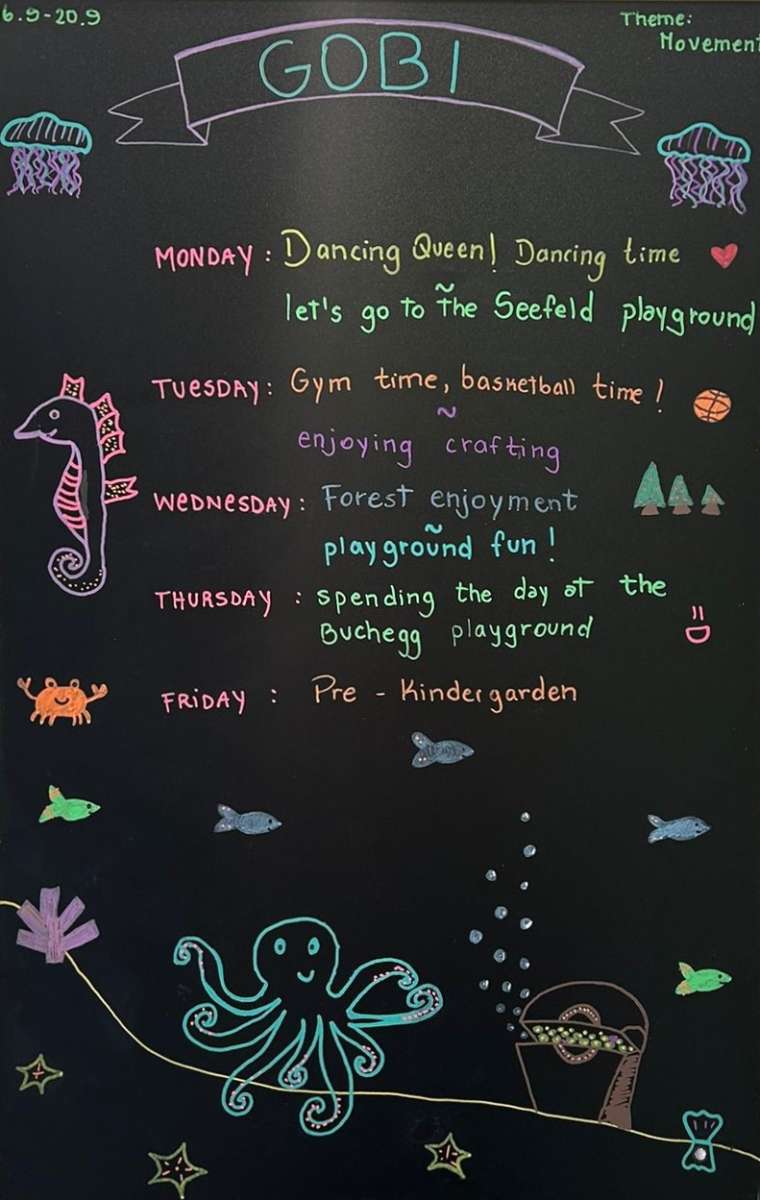 6.9-20.9
Theme:
Movement
GOBI
MONDAY: Dancing Queen! Dancing time
~
let's go to the Seefeld playground
TUESDAY: Gym time, basketball time!
~
enjoying crafting
WEDNESDAY: Forest enjoyment
~
playground fun!
THURSDAY: spending the day at the
Buchegg playground
FRiDAY: Pre-Kindergarden